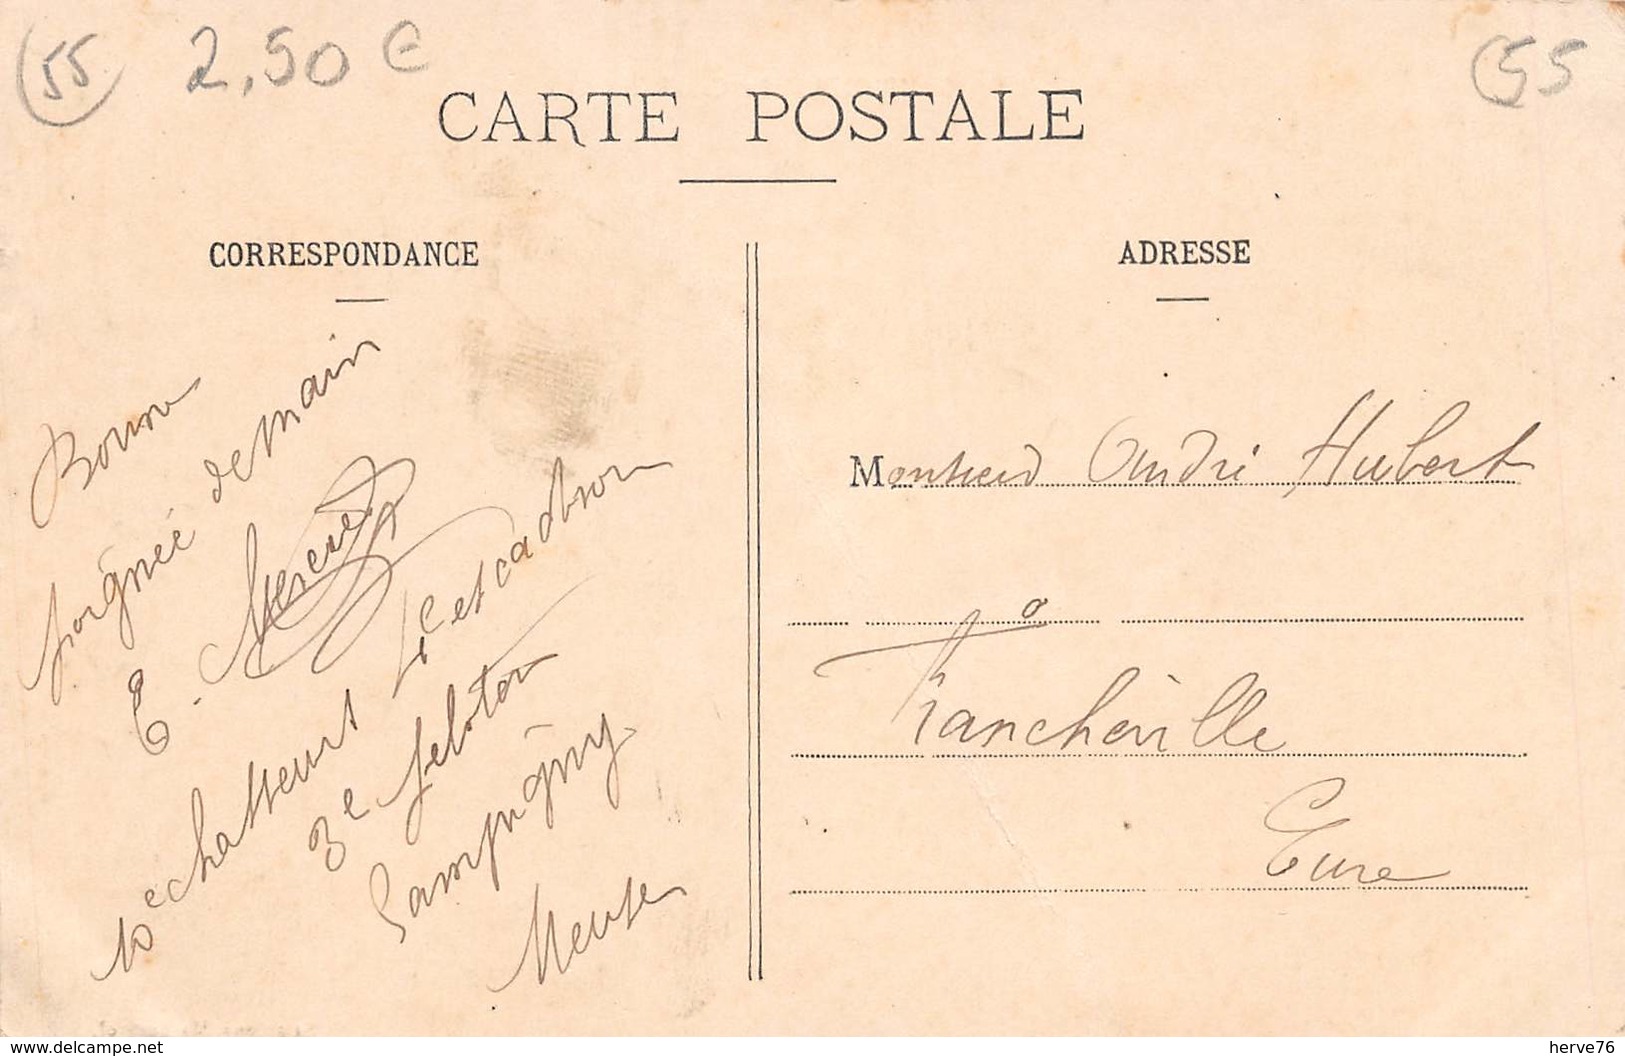 55 2,50 € 55
CARTE POSTALE
CORRESPONDANCE
ADRESSE
Bonne
poignée de main
E.
10e chasseurs 4e escadron
3e peloton
Sampigny
Meuse
Monsieur André Hubert
à
Francheville
Eure
www.delcampe.net
herve76